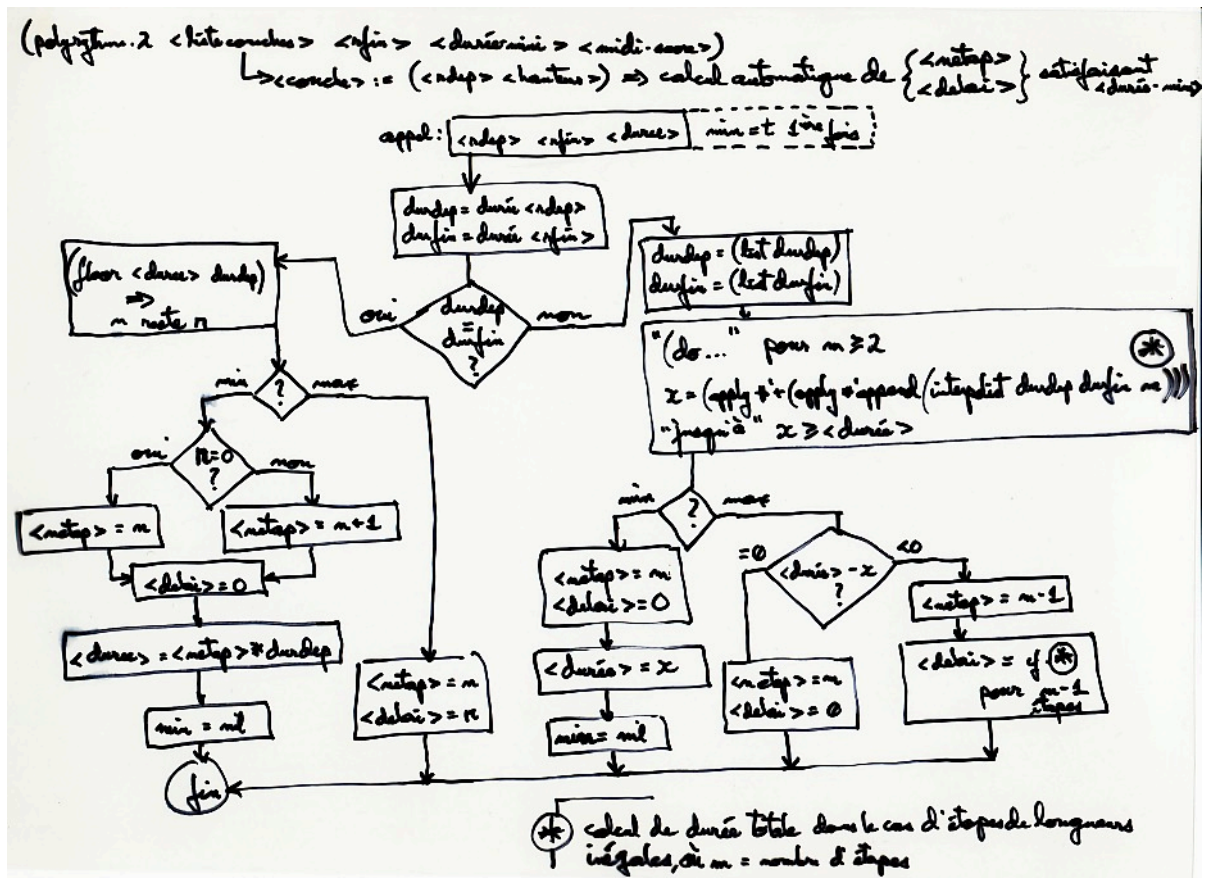 (polyrytm.2 <listecouches> <rfin> <durée mini> <midi-score>)
<couche> := (<rdep> <hauteur>) => calcul automatique de { <netap> <delai> } satisfaisant <durée-min>
appel: <rdep> <rfin> <duree> min = t 1ère fois
durdep = durée <rdep>
durfin = durée <rfin>
(floor <duree> durdep)
=>
n reste r
oui
durdep
=
durfin
?
non
durdep = (list durdep)
durfin = (list durfin)
"(do..." pour n ≥ 2 *
x = (apply #'+ (apply #'append (interpolist durdep durfin n)))
"jusqu'à" x ≥ <durée>
min ? max
oui
r=0
?
non
<netap> = n
<netap> = n+1
<delai> = 0
<duree> = <netap> * durdep
min = nil
fin
<netap> = n
<delai> = r
min ? max
<netap> = n
<delai> = 0
<durée> = x
min = nil
=0
<durée> - x
?
<0
<netap> = n
<delai> = 0
<netap> = n-1
<delai> = cf. *
pour n-1
étapes
* calcul de durée totale dans le cas d'étapes de longueurs
inégales, où n = nombre d'étapes